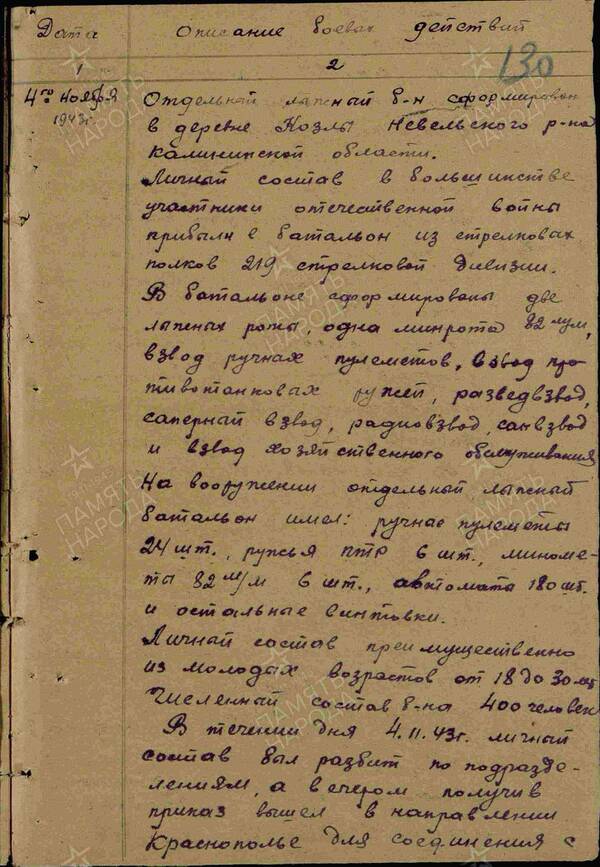 Дата Описание боевых действий
130
1 2
4го ноября Отдельный лыжный б-н сформирован
1943г. в деревне Козлы Невельского р-на
Калининской области.
Личный состав в большинстве
участники отечественной войны
прибыли в батальон из стрелковых
полков 219 стрелковой дивизии.
В батальоне сформированы две
лыжных роты, одна минрота 82 м/м,
взвод ручных пулеметов, взвод про-
тивотанковых ружей, разведвзвод,
саперный взвод, радиовзвод, санвзвод
и взвод хозяйственного обслуживания
На вооружении отдельный лыжный
батальон имел: ручные пулеметы
24 шт., ружья ПТР 6 шт., миноме-
ты 82 м/м 6 шт., автомата 180 шт.
и остальные винтовки.
Личный состав преимущественно
из молодых возрастов от 18 до 30 лет
Численный состав б-на 400 человек
В течении дня 4.11.43г. личный
состав был разбит по подразде-
лениям, а вечером получив
приказ вышел в направлении
Краснополье для соединения с
ПАМЯТЬ НАРОДА